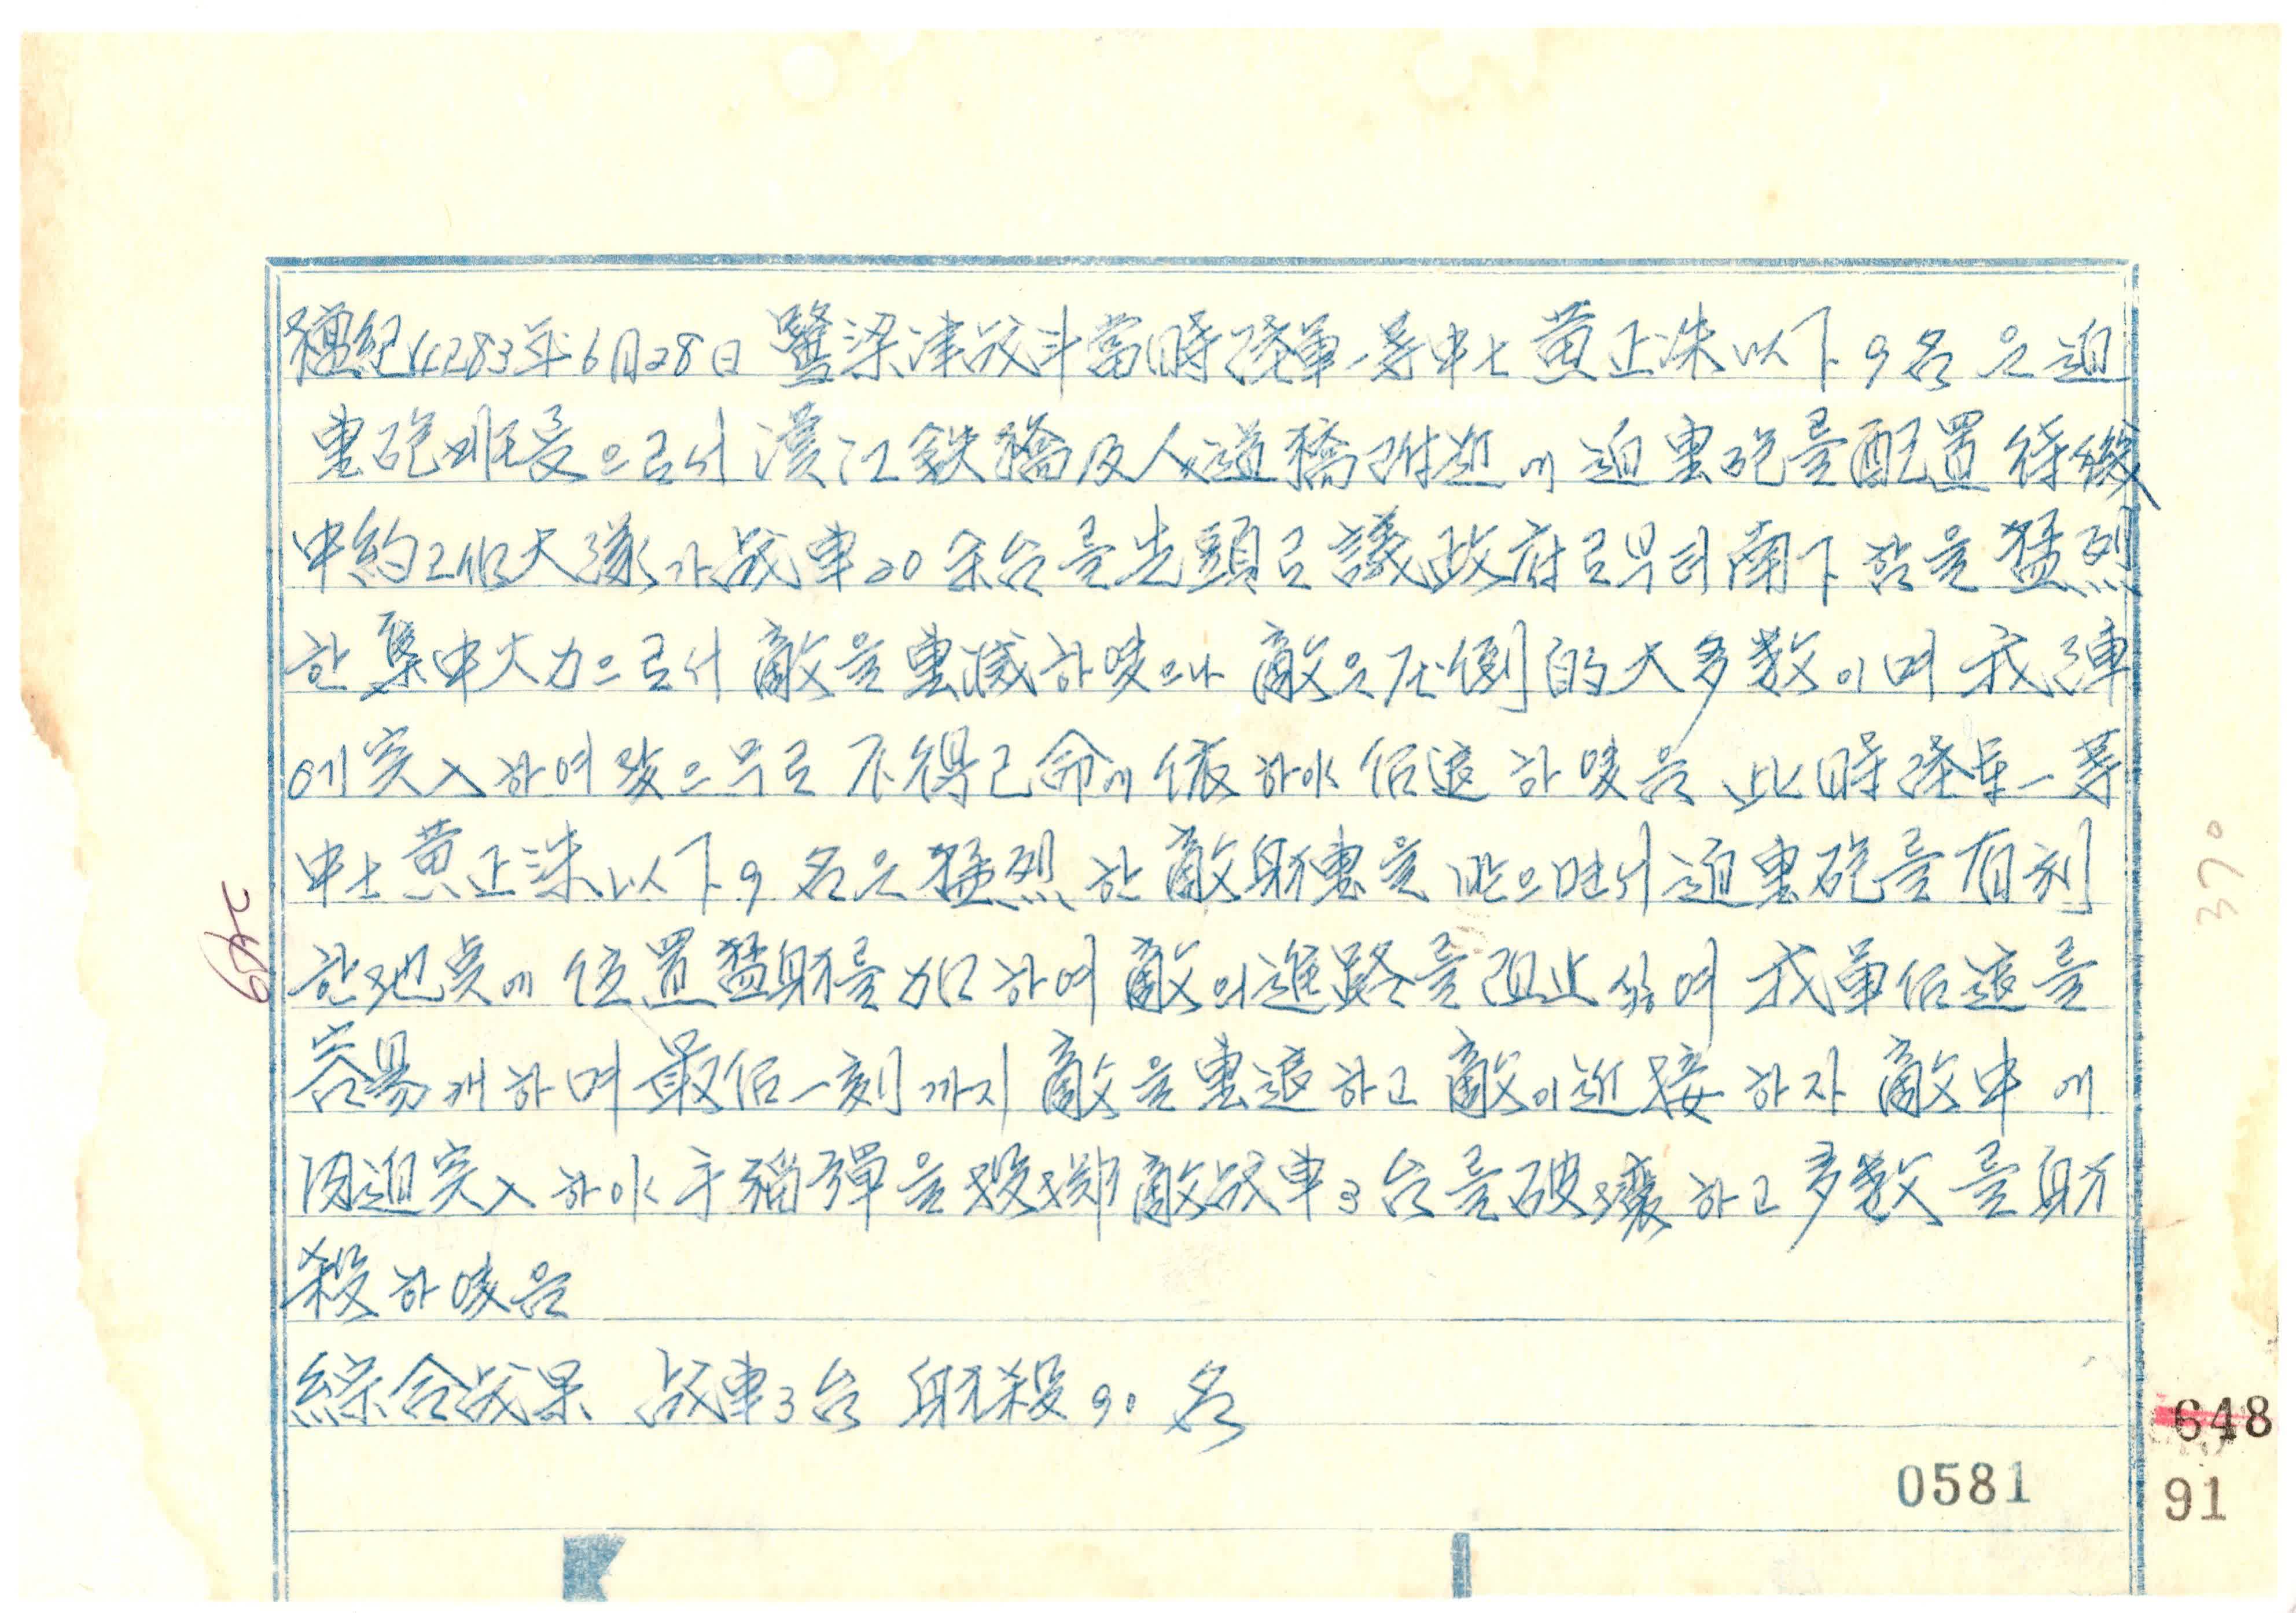 檀紀4283年6月28日 鷺梁津战斗當時陸軍一等中士 黃正洙以下 9名은 迫
擊砲班長으로서 漢江鉄橋及人道橋附近에 迫擊砲를 配置 待機
中 約2個大隊가 战車20余台를 先頭로 議政府로부터 南下함을 猛烈
한 集中火力으로서 敵을 擊滅하였으나 敵은 压倒的大多数이며 我陣
에 突入하여 왔으므로 不得已 命에 依하야 后退하였음 此時 陸軍一等
中士 黃正洙以下 9名은 猛烈한 敵射擊을 받으면서 迫擊砲를 有利
한 地点에 位置 猛射를 加하여 敵의 進路를 阻止하며 我軍后退를
容易케하며 最后一刻까지 敵을 擊退하고 敵이 近接하자 敵中에
肉迫突入하야 手榴彈을 投擲 敵战車3台를 破壞하고 多数를 射
殺하였음
綜合战果 战車3台 射殺 90名
249
370
648
0581
91